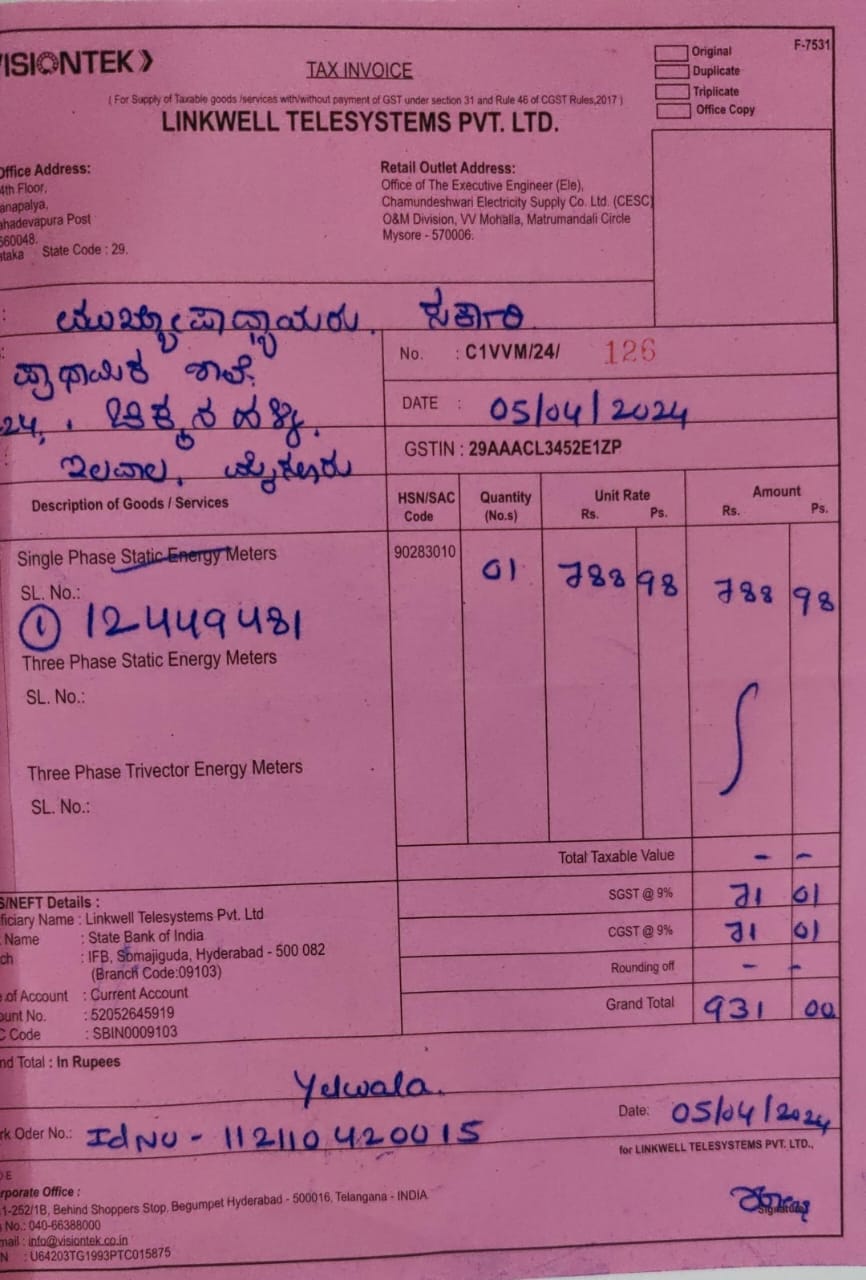 VISIONTEK
TAX INVOICE
Original
Duplicate
Triplicate
Office Copy
F-7531
( For Supply of Taxable goods /services with/without payment of GST under section 31 and Rule 46 of CGST Rules,2017 )
LINKWELL TELESYSTEMS PVT. LTD.
Office Address:
4th Floor,
anapalya,
ahadevapura Post
560048.
ataka State Code : 29.
Retail Outlet Address:
Office of The Executive Engineer (Ele),
Chamundeshwari Electricity Supply Co. Ltd. (CESC)
O&M Division, VV Mohalla, Matrumandali Circle
Mysore - 570006.
ಮುಖ್ಯೋಪಾಧ್ಯಾಯರು. ಸರ್ಕಾರಿ
ಪ್ರಾಥಮಿಕ ಶಾಲೆ.
24,
ಇಲವಾಲ, ಮೈಸೂರು
No. : C1VVM/24/ 126
DATE : 05/04/2024
GSTIN : 29AAACL3452E1ZP
Description of Goods / Services HSN/SAC Code Quantity (No.s) Unit Rate Rs. Ps. Amount Rs. Ps.
Single Phase Static Energy Meters 90283010 01 788 98 788 98
SL. No.:
① 12449481
Three Phase Static Energy Meters
SL. No.:
Three Phase Trivector Energy Meters
SL. No.:
Total Taxable Value - -
SGST @ 9% 71 01
CGST @ 9% 71 01
Rounding off - -
Grand Total 931 00
S/NEFT Details :
ficiary Name : Linkwell Telesystems Pvt. Ltd
Name : State Bank of India
ch : IFB, Somajiguda, Hyderabad - 500 082
(Branch Code:09103)
e of Account : Current Account
ount No. : 52052645919
C Code : SBIN0009103
nd Total : In Rupees
Yelwala.
rk Oder No.: Id NO - 112110420015
Date: 05/04/2024
for LINKWELL TELESYSTEMS PVT. LTD.,
rporate Office :
1-252/1B, Behind Shoppers Stop, Begumpet Hyderabad - 500016, Telangana - INDIA.
No.: 040-66388000
mail : info@visiontek.co.in
N : U64203TG1993PTC015875